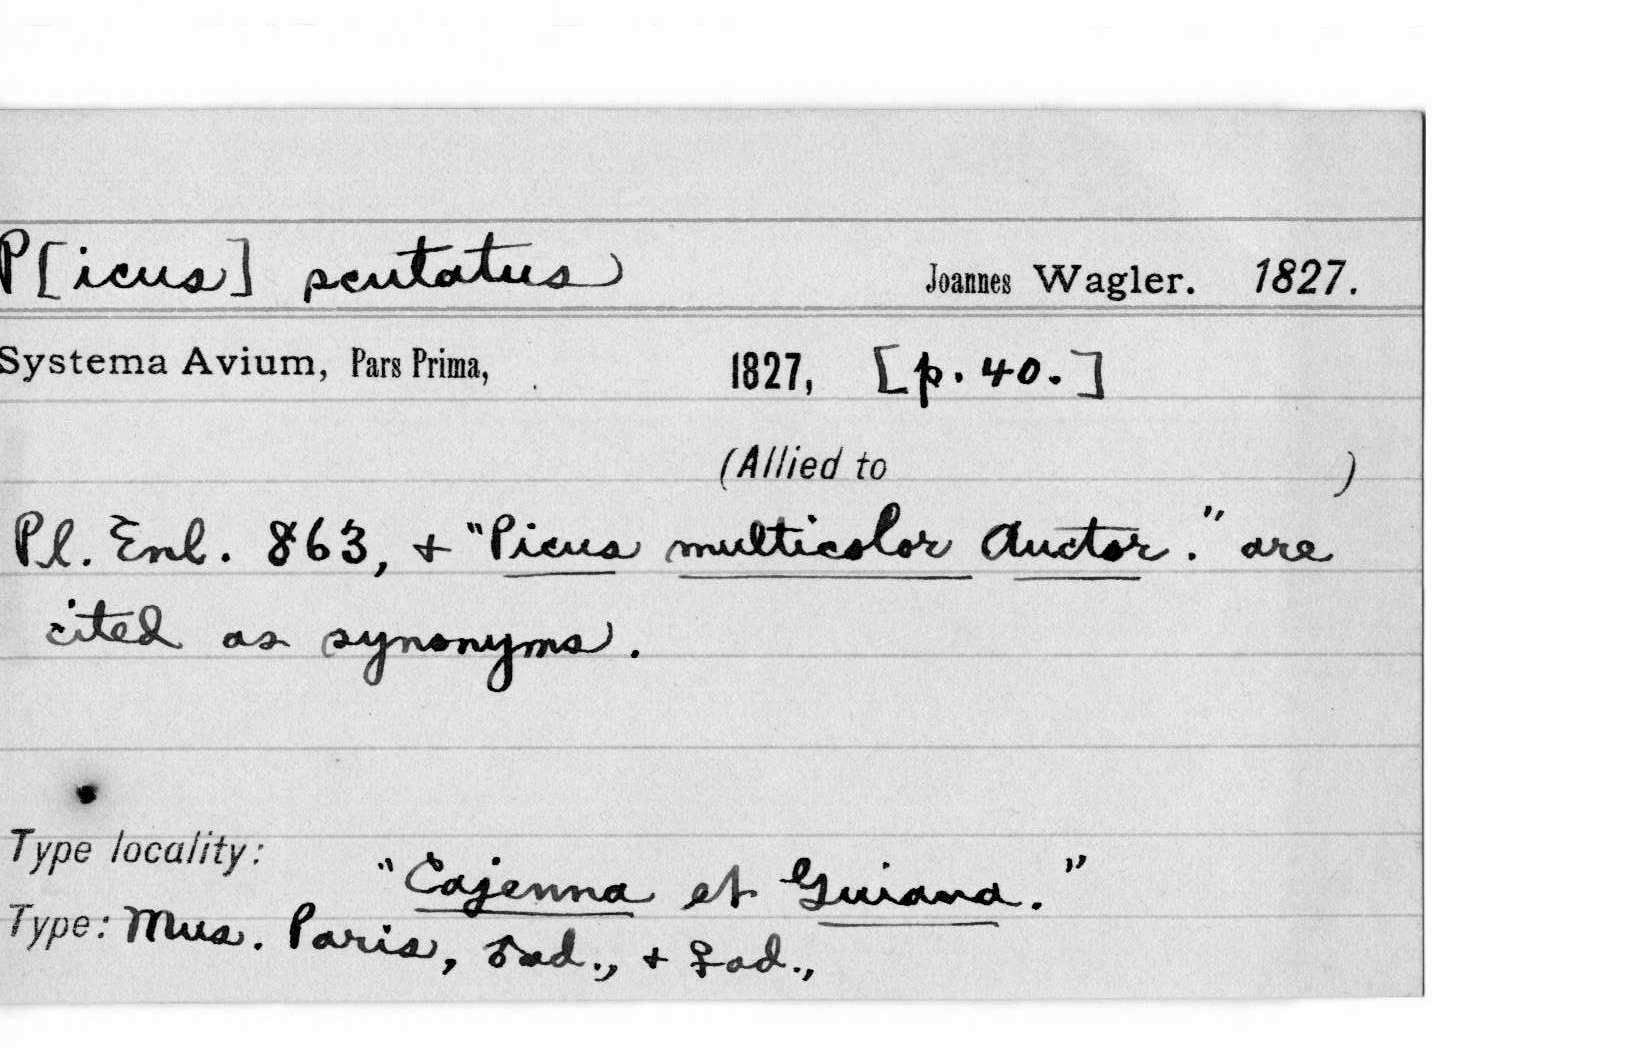 P[icus] scutatus Joannes Wagler. 1827.
Systema Avium, Pars Prima, 1827, [p. 40.]
(Allied to )
Pl. Enl. 863, + "Picus multicolor Auctor." are
cited as synonyms.
Type locality: "Cajenna et Guiana."
Type: Mus. Paris, ♂ad., + ♀ad.,